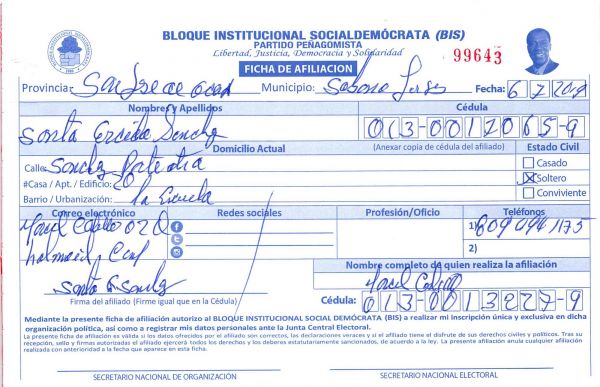 BLOQUE INSTITUCIONAL SOCIALDEMÓCRATA (BIS)
PARTIDO PEÑAGOMISTA
Libertad, Justicia, Democracia y Solidaridad
99643
FICHA DE AFILIACION
Provincia: San Jose de Ocoa Municipio: Sabana Larga Fecha: 6 7 2019
Nombres y Apellidos Cédula
Santa Ercida Sanchez 013-0012065-9
Domicilio Actual (Anexar copia de cédula del afiliado) Estado Civil
Calle: Sanchez
#Casa / Apt. / Edificio: 20
Barrio / Urbanización: La Escuela
Casado
Soltero
Conviviente
Correo electrónico Redes sociales Profesión/Oficio Teléfonos
1) 809 494 1175
2)
Nombre completo de quien realiza la afiliación
Firma del afiliado (Firme igual que en la Cédula)
Cédula: 013-0013227-9
Mediante la presente ficha de afiliación autorizo al BLOQUE INSTITUCIONAL SOCIAL DEMÓCRATA (BIS) a realizar mi inscripción única y exclusiva en dicha
organización política, así como a registrar mis datos personales ante la Junta Central Electoral.
La presente ficha de afiliación es válida si los datos ofrecidos por el afiliado son correctos, las declaraciones veraces y si el afiliado tiene el disfrute de sus derechos civiles y políticos. Tras su
recepción, sello y firmas autorizadas el afiliado ejercerá todos los derechos y los deberes estatutariamente sancionados, de acuerdo a la ley. La presente afiliación anula cualquier afiliación
realizada con anterioridad a la fecha que aparece en esta ficha.
SECRETARIO NACIONAL DE ORGANIZACIÓN SECRETARIO NACIONAL ELECTORAL